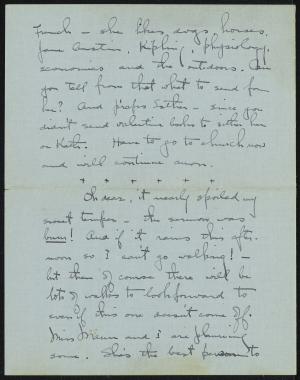 French - she likes dogs, horses,
Jane Austen, Kipling, physiology,
economics and the outdoors. Can
you tell from that what to send for
her? And prefers Esther - since you
didn't send valentine books to either her
or Kath. Have to go to church now
and will continue anon.
+ + + + + +
Oh dear, it nearly spoiled my
sweet temper - the sermon was
bum! And if it rains this after-
noon so I can't go walking! -
but then of course there will be
lots of walks to look forward to
even if this one doesn't come off.
Miss and I are planning
some. She's the best person to